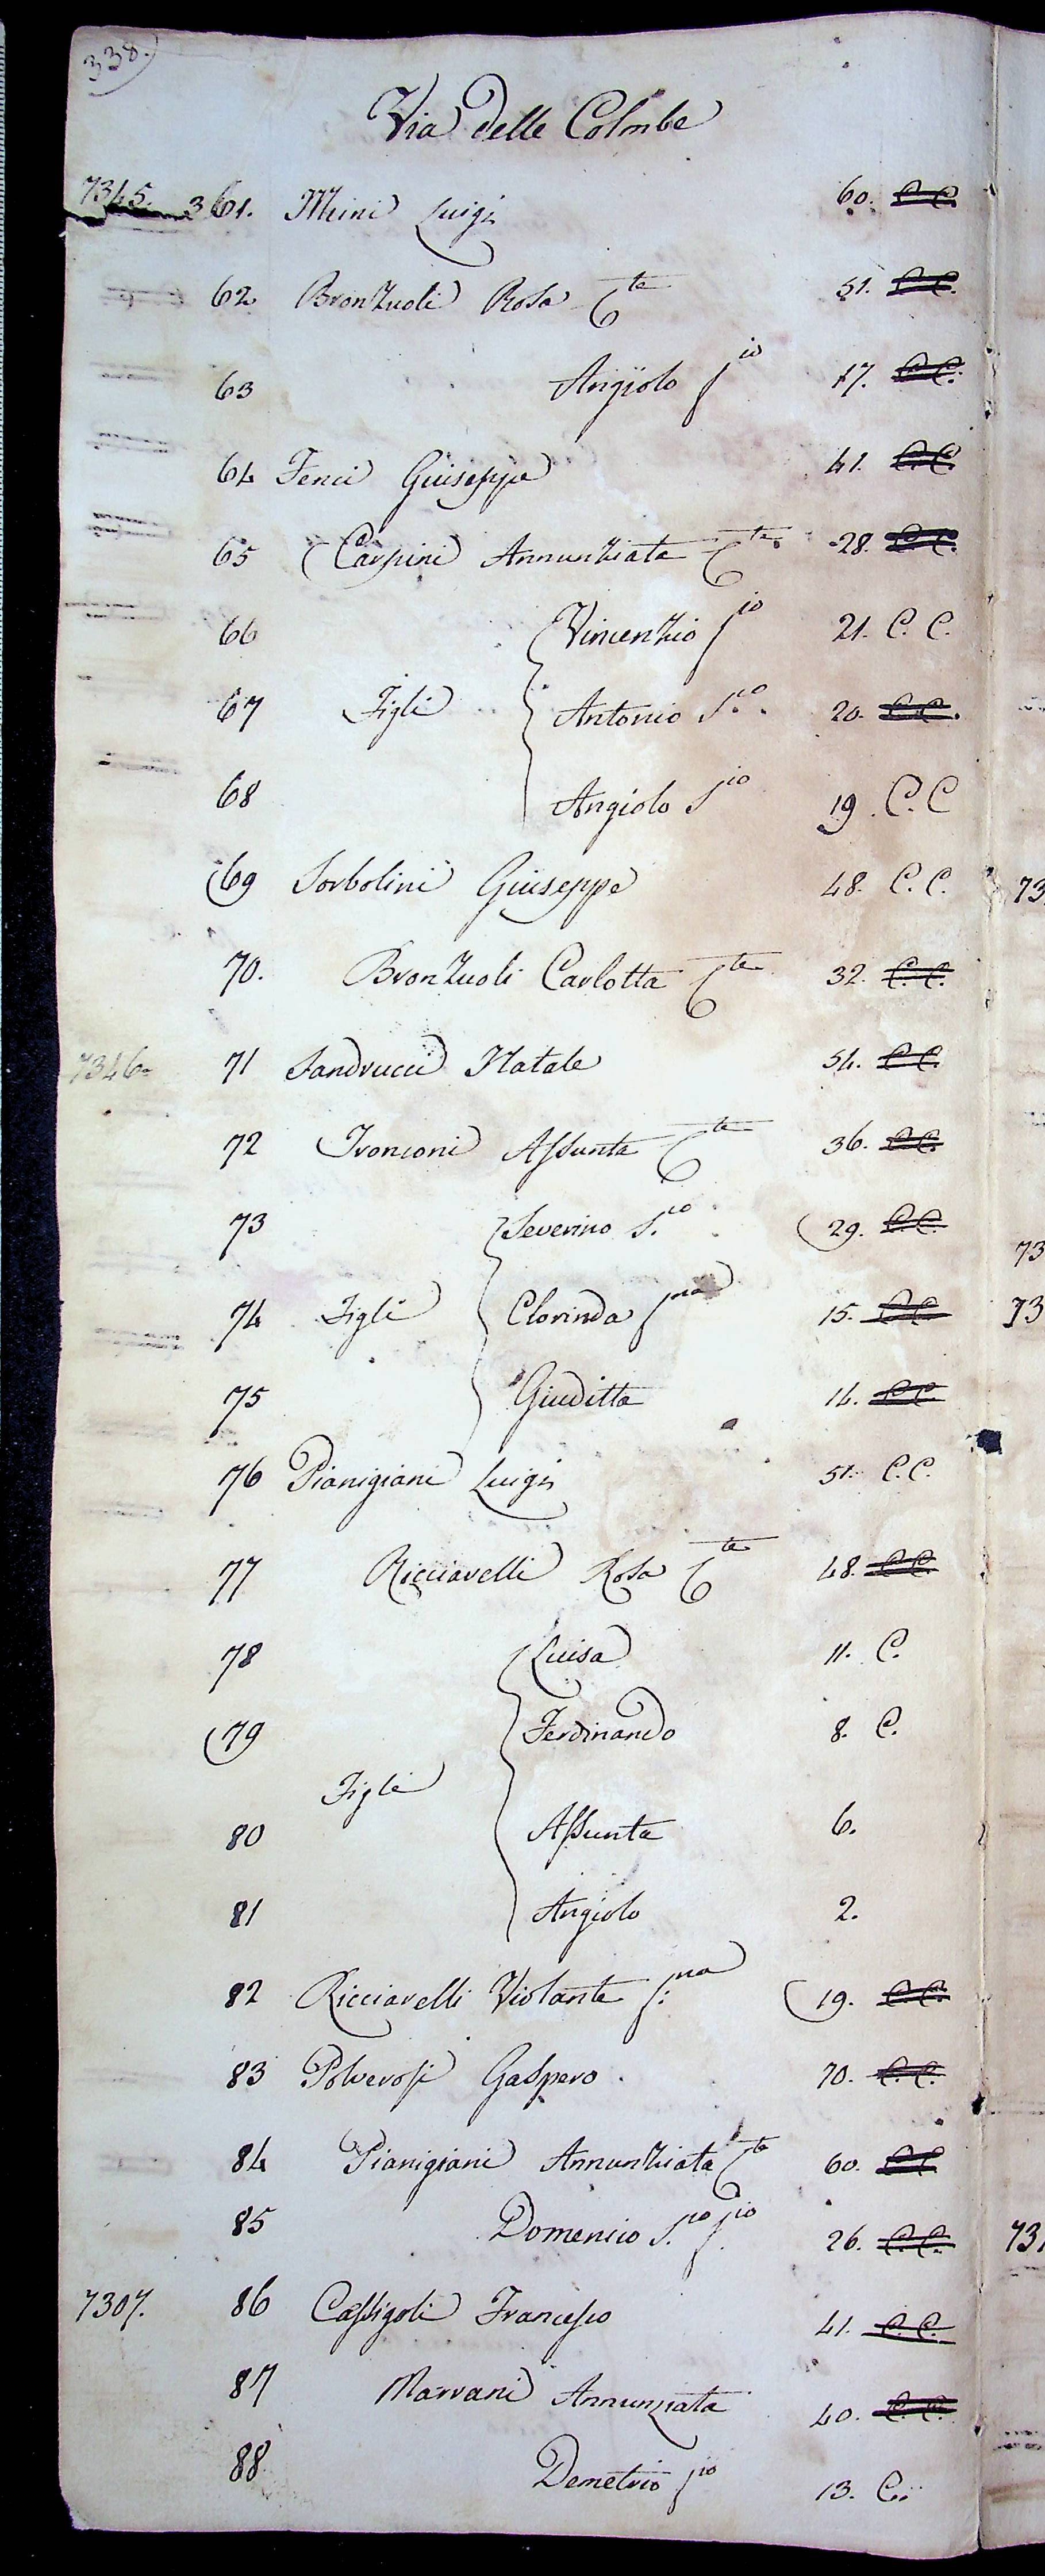 338.
Via delle Colombe
7345. 361. Meini Luigi 60. C. C.
62 Bronzuoli Rosa C.te 51. C. C.
63 Angiolo f.io 17. C. C.
64 Fenci Giuseppe 41. C. C.
65 Carpini Annunziata C.te 28. C. C.
66 Vincenzio f.io 21. C. C.
67 Figli Antonio S.io 20. C. C.
68 Angiolo S.io 19. C. C
69 Sorbolini Giuseppe 48. C. C.
70. Bronzuoli Carlotta C.te 32. C. C.
7346. 71 Sandrucci Natale 54. C. C.
72 Tronconi Assunta C.te 36. C. C.
73 Severino S.io 29. C. C.
74 Figli Clorinda f.na 15. C. C.
75 Giuditta 14. C. C.
76 Pianigiani Luigi 51. C. C.
77 Ricciarelli Rosa C.te 48. C. C.
78 Luisa 11. C.
79 Ferdinando 8. C.
Figli
80 Assunta 6.
81 Angiolo 2.
82 Ricciarelli Violante f.na 19. C. C.
83 Polverosi Gaspero 70. C. C.
84 Pianigiani Annunziata C.te 60. C. C.
85 Domenico S.io f.io 26. C. C.
7307. 86 Cassigoli Francesco 41. C. C.
87 Marrani Annunziata 40. C. C.
88 Demetrio f.io 13. C.